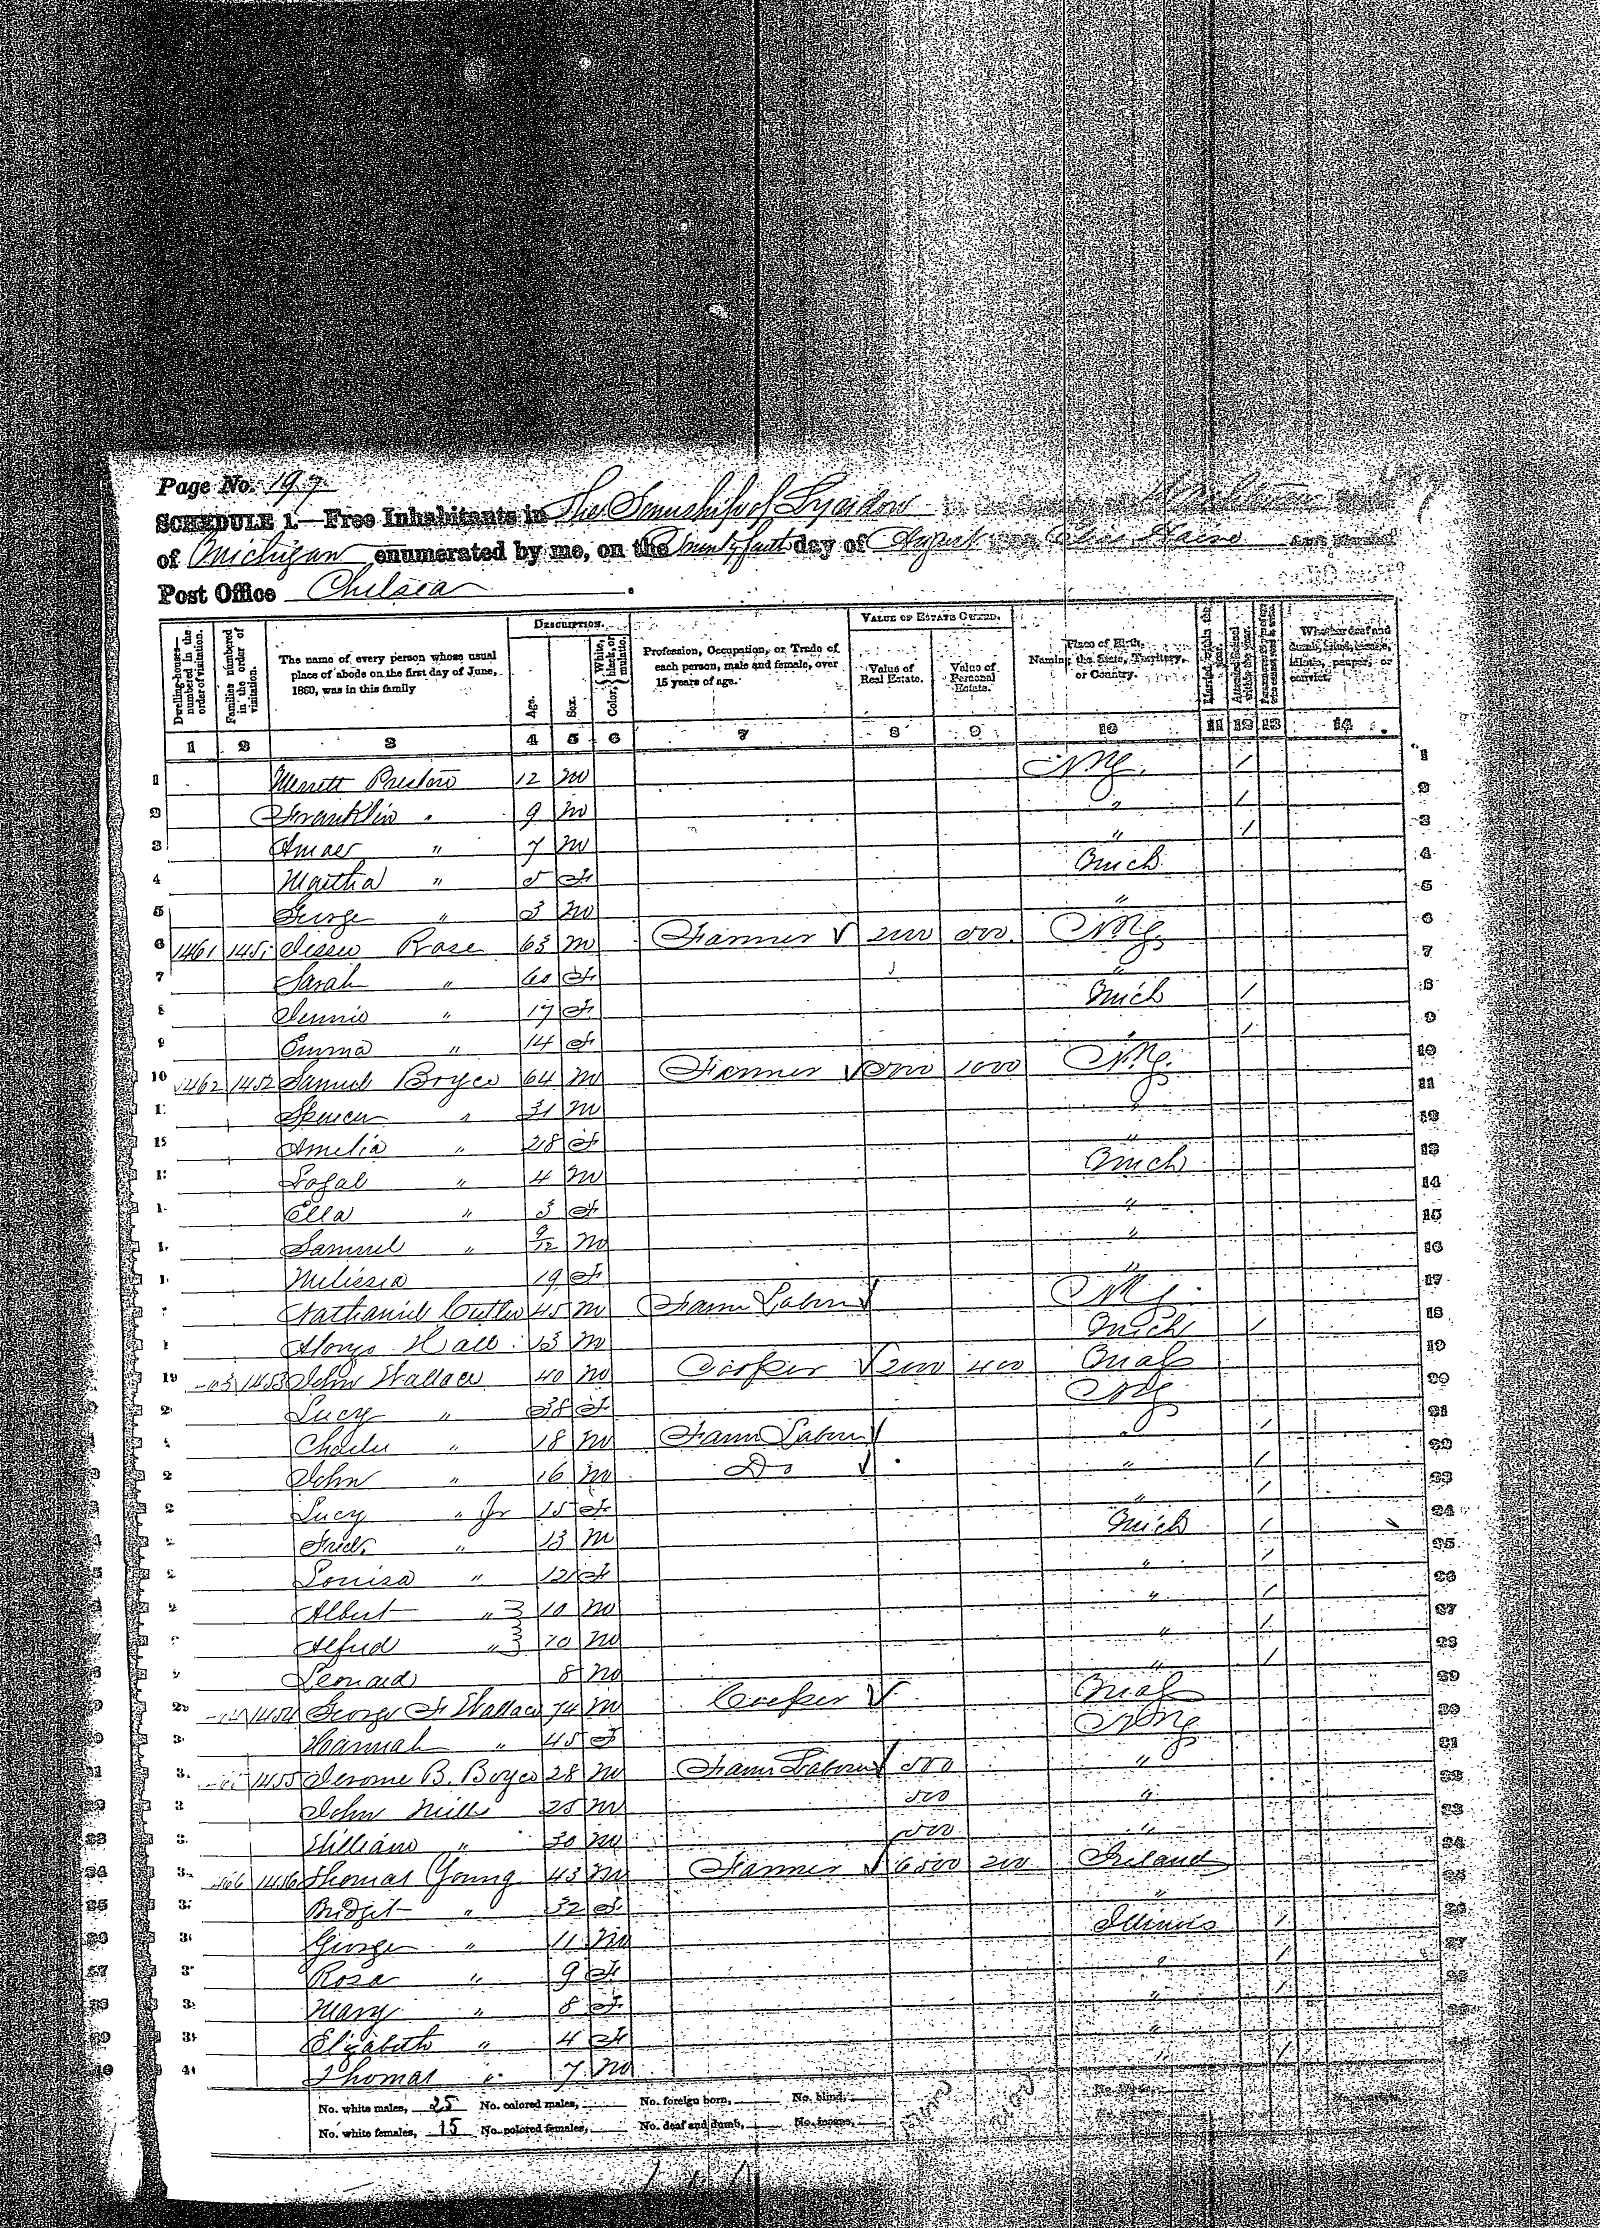 Page No. 197
SCHEDULE 1.—Free Inhabitants in The Township of Lyndon in the County of
of Michigan enumerated by me, on the day of August
Post Office Chelsea
Dwelling-houses—numbered in the order of visitation.
Families numbered in the order of visitation.
The name of every person whose usual place of abode on the first day of June, 1860, was in this family
DESCRIPTION.
Age.
Sex.
Color, { White, black, or mulatto.
Profession, Occupation, or Trade of each person, male and female, over 15 years of age.
VALUE OF ESTATE OWNED.
Value of Real Estate.
Value of Personal Estate.
Place of Birth, Naming the State, Territory, or Country.
Married within the year.
Attended School within the year.
Whether deaf and dumb, blind, insane, idiotic, pauper, or convict.
1 2 3 4 5 6 7 8 9 10 11 12 13 14
1 Merrett Preston 12 m N.Y. / 1
2 Franklin " 9 m " / 2
3 " 7 m " / 3
4 Martha " 5 f Mich 4
5 George " 3 m " 5
6 1461 1451 Jesse Rose 63 m Farmer 2000 500 N.Y. 6
7 Sarah " 60 f " 7
8 Jennie " 17 f Mich / 8
9 Emma " 14 f " / 9
10 1462 1452 Samuel Boyce 64 m Farmer 1000 N.Y. 10
Spencer " 31 m " 11
Amelia " 28 f " 12
" 4 m Mich 13
Ella " 3 f " 14
Samuel " 9/12 m " 15
Melissa 19 f " 16
Nathaniel Cutler 45 m Farm Labor N.Y. 17
Alonzo Hall 13 m Mich / 18
19 1453 John Wallace 40 m Cooper 2000 400 Mass 19
Lucy " 38 f N.Y. 20
Charles " 18 m Farm Labor " / 21
John " 16 m Do " / 22
Lucy " Jr 15 f " / 23
Fred. " 13 m Mich / 24
Louisa " 12 f " / 25
Albert " 10 m " / 26
Alfred " 10 m " / 27
Leonard 8 m " / 28
1454 George F Wallace 74 m Cooper Mass 29
Hannah " 45 f N.Y. 30
1455 Jerome B. Boyce 28 m Farm Labor 500 " 31
John Mills 25 m 500 " 32
William " 30 m 500 " 33
1456 Thomas Young 43 m Farmer 6500 200 Ireland 34
Bridget " 32 f " 35
George " 11 m Illinois / 36
Rosa " 9 f " / 37
Mary " 8 f " / 38
Elizabeth " 4 f "
Thomas " 7 m " /
No. white males, 25 No. colored males, No. foreign born, No. blind,
No. white females, 15 No. colored females, No. deaf and dumb, No. insane,